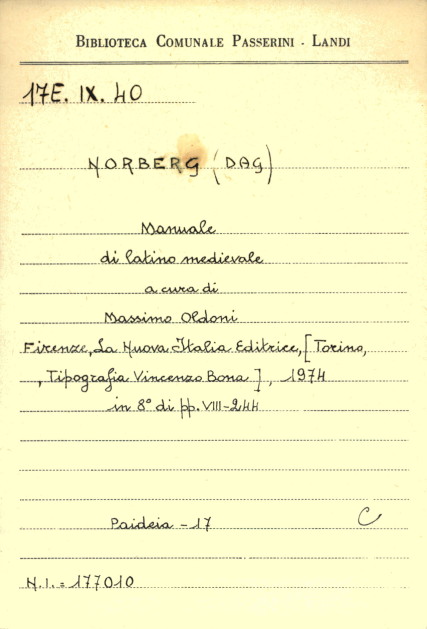 BIBLIOTECA COMUNALE PASSERINI - LANDI
17E. IX. 40
NORBERG (DAG)
Manuale
di latino medievale
a cura di
Massimo Oldoni
Firenze, La Nuova Italia Editrice, [Torino,
, Tipografia Vincenzo Bona], 1974
in 8° di pp. VIII-244
Paideia - 17 C
N.I. = 177010